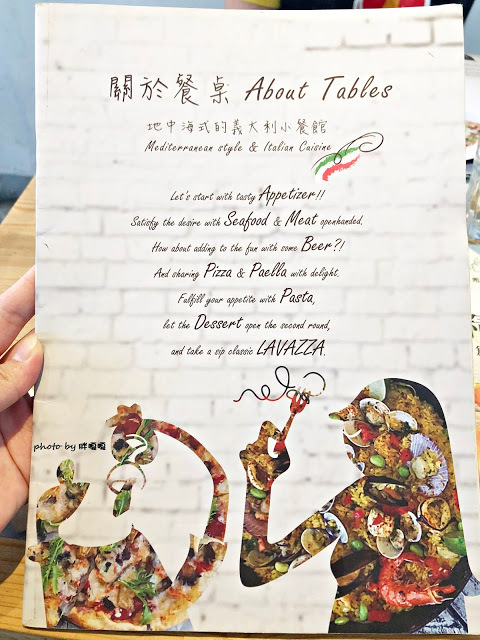 關於餐桌 About Tables
地中海式的義大利小餐館
Mediterranean style & Italian Cuisine
Let's start with tasty Appetizer!!
Satisfy the desire with Seafood & Meat openhanded.
How about adding to the fun with some Beer?!
And sharing Pizza & Paella with delight.
Fulfill your appetite with Pasta,
let the Dessert open the second round,
and take a sip classic LAVAZZA.
photo by 胖嘟嘟